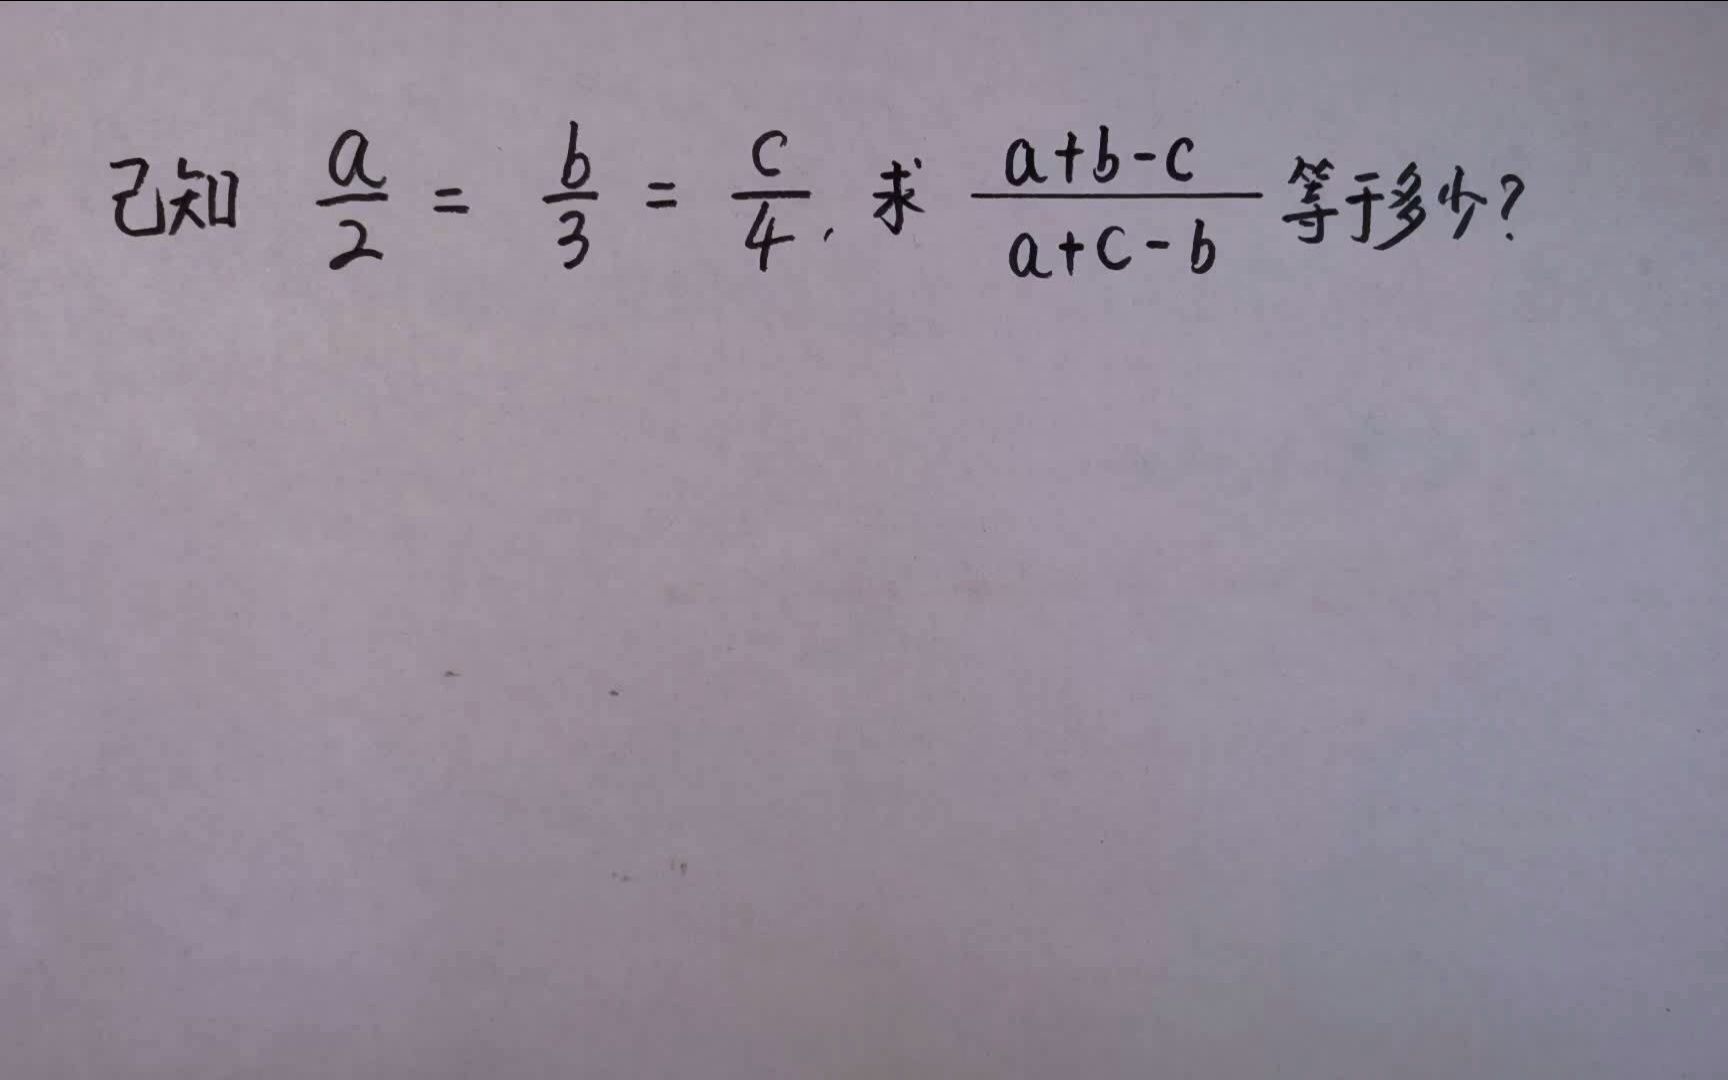 已知 a/2 = b/3 = c/4, 求 (a+b-c)/(a+c-b) 等于多少?